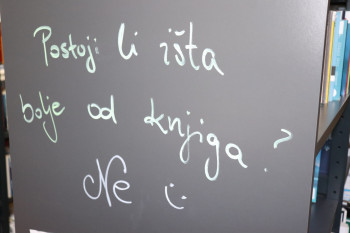 Postoji li išta
bolje od knjiga?
Ne :)